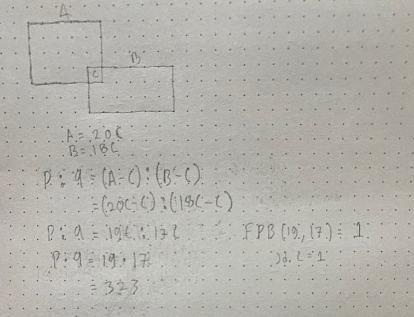 A
B
C
A = 20C
B = 18C
P : q = (A-C) : (B-C)
= (20C-C) : (18C-C)
P : q = 19C : 17C
FPB (19, 17) = 1
P . q = 19 . 17
Jd. C = 1
= 323